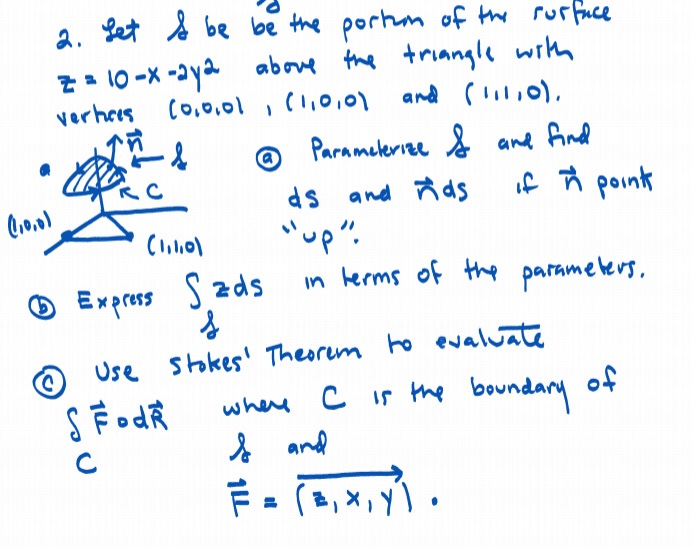 2. Let S be be the portion of the surface
z = 10-x-2y2 above the triangle with
vertices (0,0,0), (1,0,0) and (1,1,0).
n⃗
S
C
(1,0,0)
(1,1,0)
(a) Parameterize S and find
ds and n⃗ds if n⃗ points
"up".
(b) Express ∫ z ds in terms of the parameters.
S
(c) Use Stokes' Theorem to evaluate
∫ F⃗ ∘ dR⃗ where C is the boundary of
C
S and
F⃗ = (z, x, y).